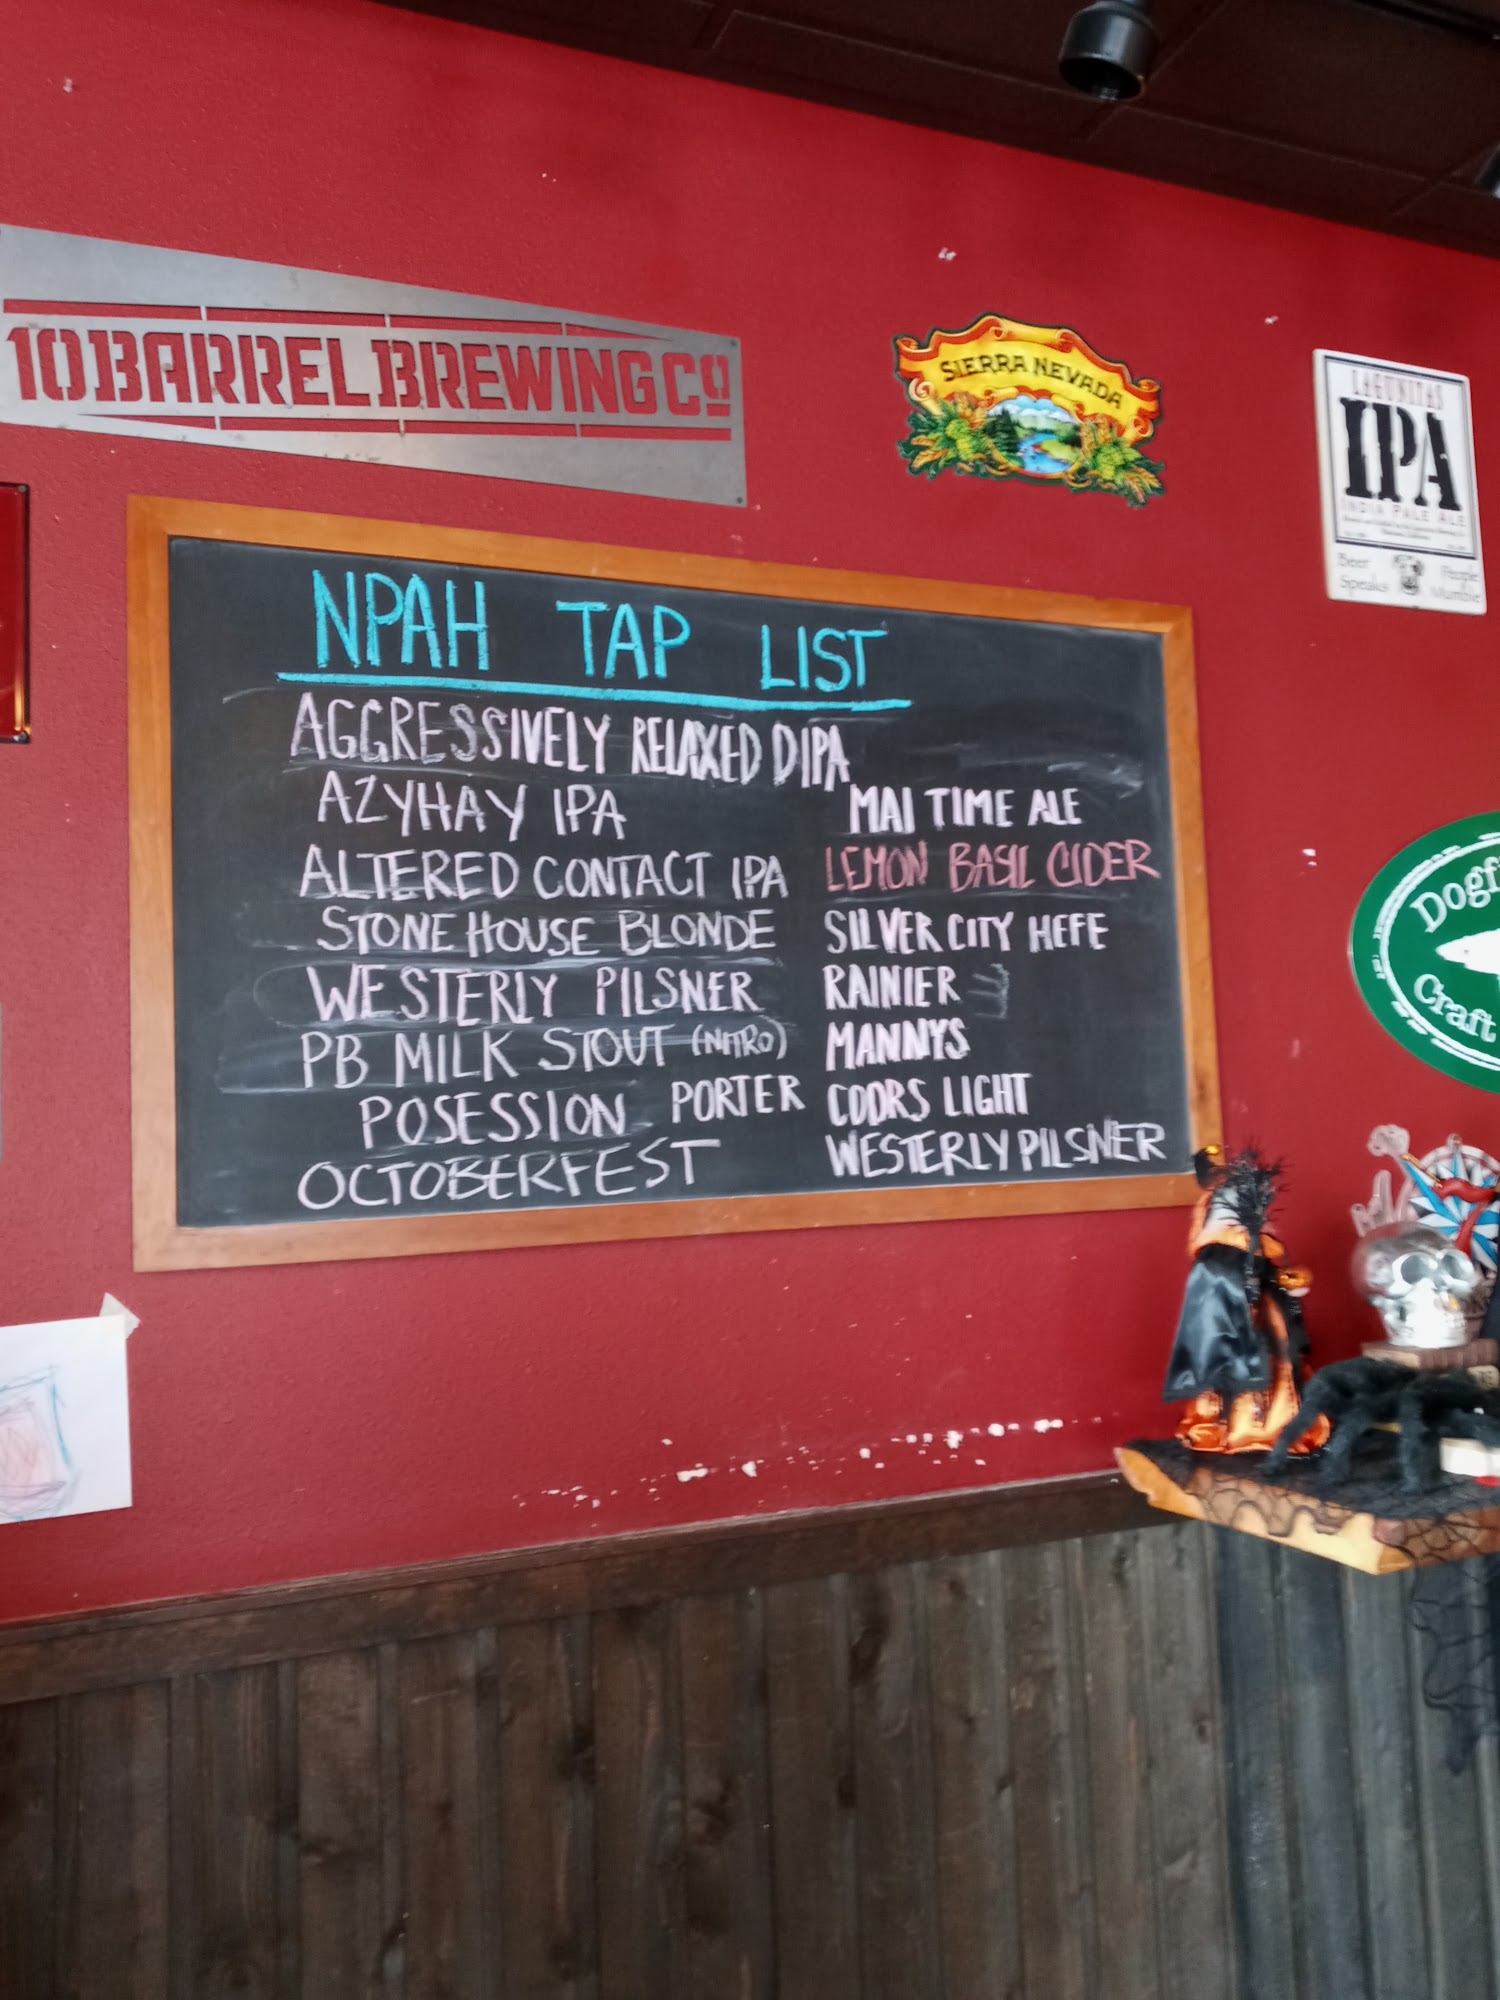 10 BARREL BREWING CO
SIERRA NEVADA
LAGUNITAS
IPA
INDIA PALE ALE
Beer People
Speaks Mumble
NPAH TAP LIST
AGGRESSIVELY RELAXED DIPA
AZYHAY IPA
ALTERED CONTACT IPA
STONE HOUSE BLONDE
WESTERLY PILSNER
PB MILK STOUT (NITRO)
POSESSION PORTER
OCTOBERFEST
MAI TIME ALE
LEMON BASIL CIDER
SILVER CITY HEFE
RAINIER
MANNYS
COORS LIGHT
WESTERLY PILSNER
Dogf
Craft